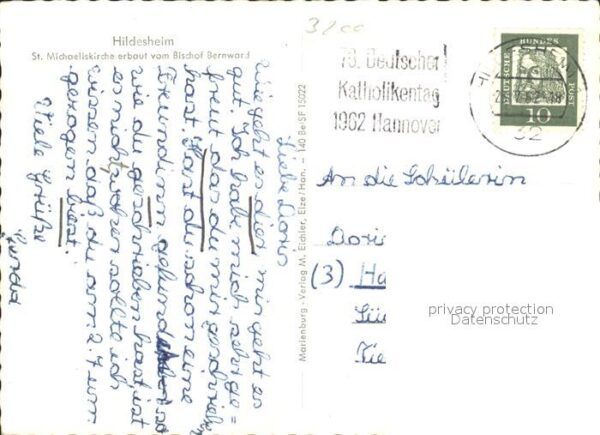 3200
Hildesheim
St. Michaeliskirche erbaut vom Bischof Bernward
79. Deutscher
Katholikentag
1962 Hannover
DEUTSCHE BUNDESPOST
10
32
Liebe Doris
Wie geht es dir mir geht es
gut. Ich habe mich sehr ge=
freut das du mir geschrieben
hast. Hast du schon eine
Freundinn gefunden
wie du geschrieben hast, ist
es nicht woher sollte ich
wissen daß du am 2.7 um
gezogen bist.
Viele Grüße
Marienburg-Verlag M. Eichler, Elze/Han. - 140 Be-SF 15022
An die Schülerin
Doris
(3) Ha
privacy protection
Datenschutz